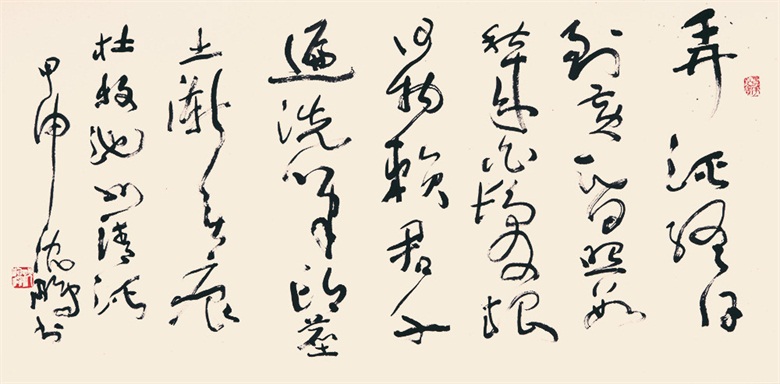 弄溪終日
到黄昏照數
秋來白髮根
何物賴君千
遍洗筆頭塵
土漸無痕
杜牧池州清溪
甲申沈鵬書